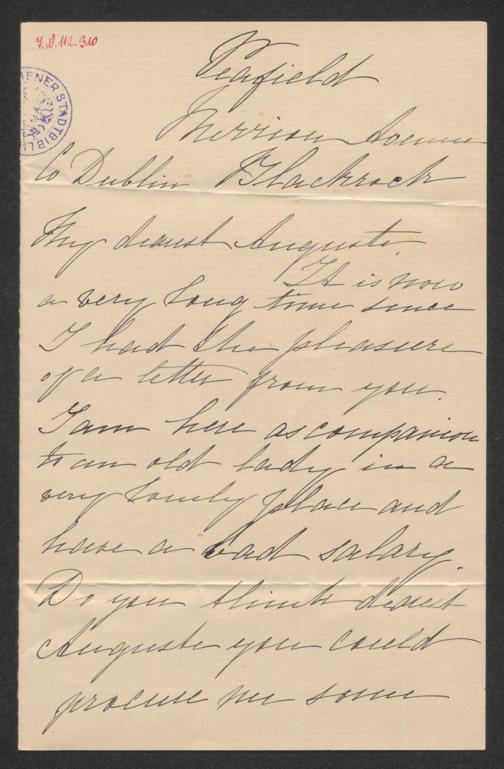 I.N. 112.310
WIENER STADTBIBLI
Peafield
Merrion Avenue
Co Dublin Blackrock
My dearest Auguste.
It is now
a very long time since
I had the pleasure
of a letter from you.
I am here as companion
to an old lady in a
very lonely place and
have a bad salary.
Do you think dearest
Auguste you could
procure me some